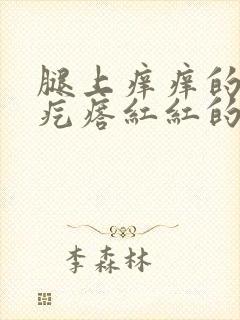 腿上痒痒的
疙瘩红红的
李森林